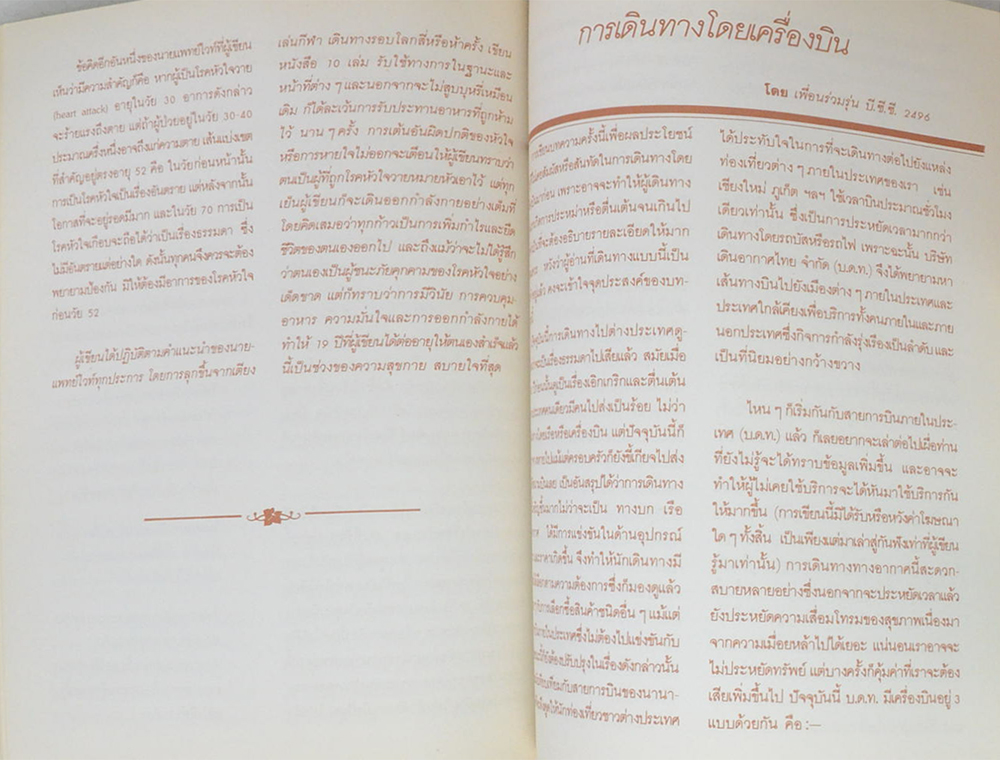 ข้อคิดอีกอันหนึ่งของนายแพทย์ไวท์ที่ผู้เขียน
เห็นว่ามีความสำคัญก็คือ หากผู้เป็นโรคหัวใจวาย
(heart attack) อายุในวัย 30 อาการดังกล่าว
จะร้ายแรงถึงตาย แต่ถ้าผู้ป่วยอยู่ในวัย 30-40
ประมาณครึ่งหนึ่งอาจถึงแก่ความตาย เส้นแบ่งเขต
ที่สำคัญอยู่ตรงอายุ 52 คือ ในวัยก่อนหน้านั้น
การเป็นโรคหัวใจเป็นเรื่องอันตราย แต่หลังจากนั้น
โอกาสที่จะอยู่รอดมีมาก และในวัย 70 การเป็น
โรคหัวใจเกือบจะถือได้ว่าเป็นเรื่องธรรมดา ซึ่ง
ไม่มีอันตรายแต่อย่างใด ดังนั้นทุกคนจึงควรจะต้อง
พยายามป้องกัน มิให้ต้องมีอาการของโรคหัวใจ
ก่อนวัย 52
ผู้เขียนได้ปฏิบัติตามคำแนะนำของนาย-
แพทย์ไวท์ทุกประการ โดยการลุกขึ้นจากเตียง
เล่นกีฬา เดินทางรอบโลกสี่หรือห้าครั้ง เขียน
หนังสือ 10 เล่ม รับใช้ทางการในฐานะและ
หน้าที่ต่าง ๆ และนอกจากจะไม่สูบบุหรี่เหมือน
เดิม ก็ได้ละเว้นการรับประทานอาหารที่ถูกห้าม
ไว้ นาน ๆ ครั้ง การเต้นอันผิดปกติของหัวใจ
หรือการหายใจไม่ออกจะเตือนให้ผู้เขียนทราบว่า
ตนเป็นผู้ที่ถูกโรคหัวใจวายหมายหัวเอาไว้ แต่ทุก
เย็นผู้เขียนก็จะเดินออกกำลังกายอย่างเต็มที่
โดยคิดเสมอว่าทุกก้าวเป็นการเพิ่มกำไรและยืด
ชีวิตของตนเองออกไป และถึงแม้ว่าจะไม่ได้รู้สึก
ว่าตนเองเป็นผู้ชนะภัยคุกคามของโรคหัวใจอย่าง
เด็ดขาด แต่ก็ทราบว่าการมีวินัย การควบคุม
อาหาร ความมั่นใจและการออกกำลังกายได้
ทำให้ 19 ปีที่ผู้เขียนได้ต่ออายุให้ตนเองสำเร็จแล้ว
นี้เป็นช่วงของความสุขกาย สบายใจที่สุด
การเดินทางโดยเครื่องบิน
โดย เพื่อนร่วมรุ่น บี.ซี.ซี. 2496
การเขียนบทความครั้งนี้เพื่อผลประโยชน์
สัมผัสหรือสันทัดในการเดินทางโดย
ก่อน เพราะอาจจะทำให้ผู้เดินทาง
เกิดการประหม่าหรือตื่นเต้นจนเกินไป
ที่จะต้องอธิบายรายละเอียดให้มาก
หวังว่าผู้อ่านที่เดินทางแบบนี้เป็น
แล้ว คงจะเข้าใจจุดประสงค์ของบท-
นี้การเดินทางไปต่างประเทศดู-
จะเป็นเรื่องธรรมดาไปเสียแล้ว สมัยเมื่อ
ก่อนนั้นดูเป็นเรื่องเอิกเกริกและตื่นเต้น
คนเดียวมีคนไปส่งเป็นร้อย ไม่ว่า
โดยเรือหรือเครื่องบิน แต่ปัจจุบันนี้ก็
ไปแม้แต่ครอบครัวก็ยังขี้เกียจไปส่ง
เลย เป็นอันสรุปได้ว่าการเดินทาง
ขึ้นมากไม่ว่าจะเป็น ทางบก เรือ
ได้มีการแข่งขันในด้านอุปกรณ์
และราคาเกิดขึ้น จึงทำให้นักเดินทางมี
ตามความต้องการซึ่งก็มองดูแล้ว
การเลือกซื้อสินค้าชนิดอื่น ๆ แม้แต่
ภายในประเทศซึ่งไม่ต้องไปแข่งขันกับ
ก็ยังต้องปรับปรุงในเรื่องดังกล่าวนั้น
เทียมกับสายการบินของนานา-
ให้นักท่องเที่ยวชาวต่างประเทศ
ได้ประทับใจในการที่จะเดินทางต่อไปยังแหล่ง
ท่องเที่ยวต่าง ๆ ภายในประเทศของเรา เช่น
เชียงใหม่ ภูเก็ต ฯลฯ ใช้เวลาบินประมาณชั่วโมง
เดียวเท่านั้น ซึ่งเป็นการประหยัดเวลามากกว่า
เดินทางโดยรถบัสหรือรถไฟ เพราะฉะนั้น บริษัท
เดินอากาศไทย จำกัด (บ.ด.ท.) จึงได้พยายามหา
เส้นทางบินไปยังเมืองต่าง ๆ ภายในประเทศและ
ประเทศใกล้เคียงเพื่อบริการทั้งคนภายในและภาย
นอกประเทศซึ่งกิจการกำลังรุ่งเรืองเป็นลำดับ และ
เป็นที่นิยมอย่างกว้างขวาง
ไหน ๆ ก็เริ่มกันกับสายการบินภายในประ-
เทศ (บ.ด.ท.) แล้ว ก็เลยอยากจะเล่าต่อไปเผื่อท่าน
ที่ยังไม่รู้จะได้ทราบข้อมูลเพิ่มขึ้น และอาจจะ
ทำให้ผู้ไม่เคยใช้บริการจะได้หันมาใช้บริการกัน
ให้มากขึ้น (การเขียนนี้มิได้รับหรือหวังค่าโฆษณา
ใด ๆ ทั้งสิ้น เป็นเพียงแต่มาเล่าสู่กันฟังเท่าที่ผู้เขียน
รู้มาเท่านั้น) การเดินทางทางอากาศนี้สะดวก-
สบายหลายอย่างซึ่งนอกจากจะประหยัดเวลาแล้ว
ยังประหยัดความเสื่อมโทรมของสุขภาพเนื่องมา
จากความเมื่อยหล้าไปได้เยอะ แน่นอนเราอาจจะ
ไม่ประหยัดทรัพย์ แต่บางครั้งก็คุ้มค่าที่เราจะต้อง
เสียเพิ่มขึ้นไป ปัจจุบันนี้ บ.ด.ท. มีเครื่องบินอยู่ 3
แบบด้วยกัน คือ :—